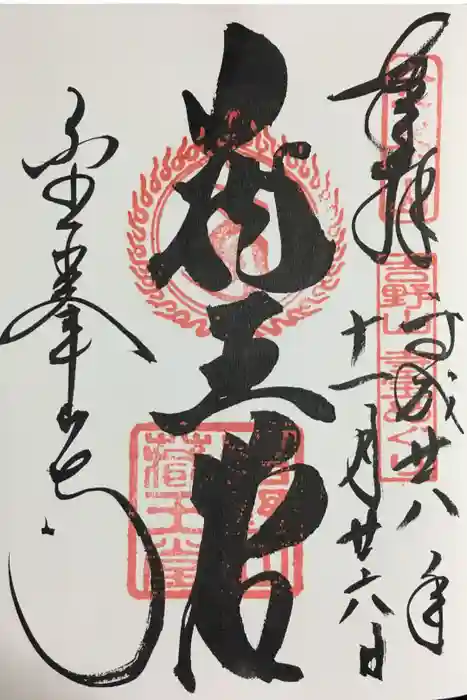 奉拝
平成廿八年
十一月廿六日
蔵王堂
金峯山寺
吉野山
藏王堂
吉野山